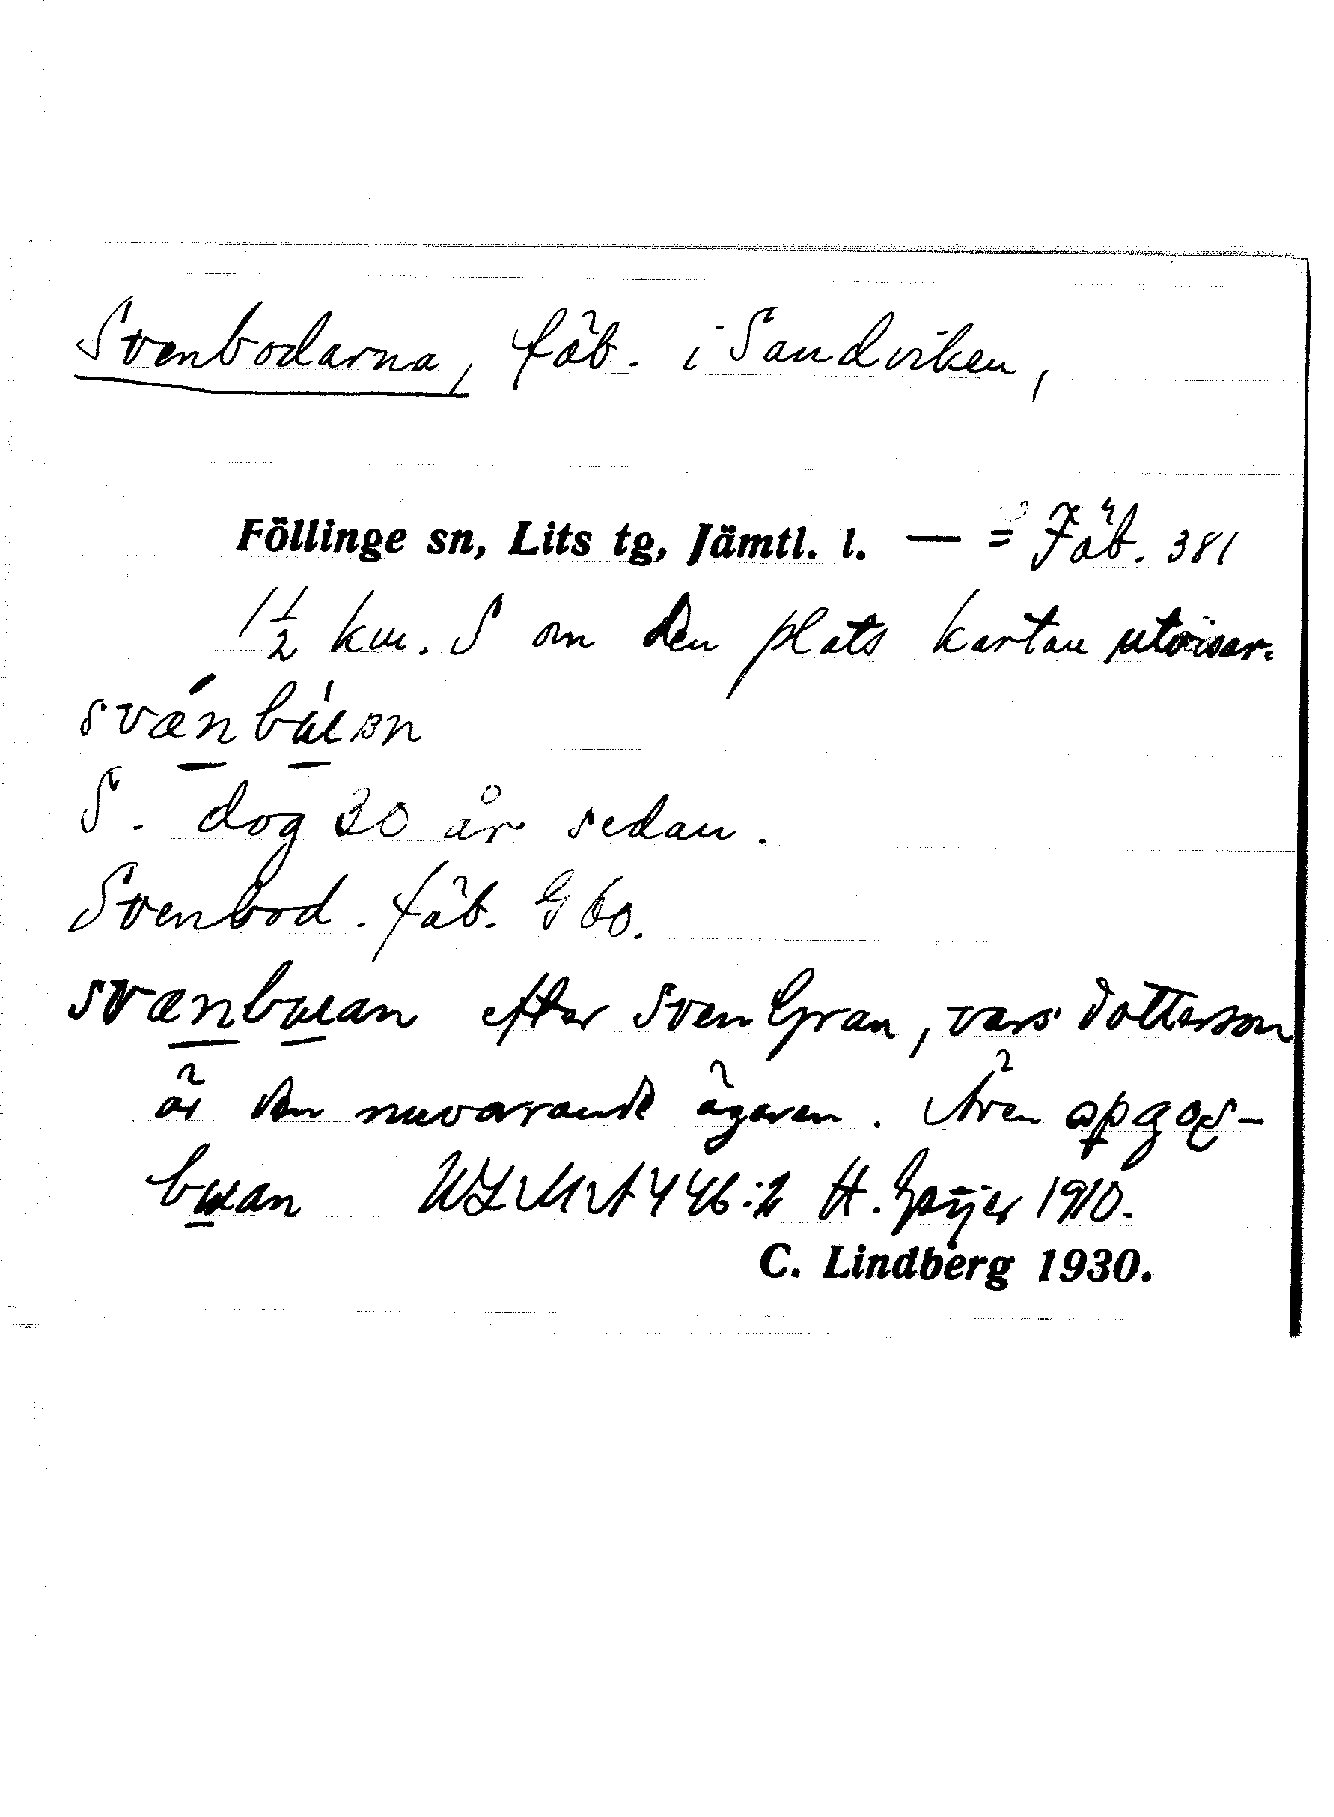 Svenbodarna, fäb. i Sandviken,
Föllinge sn, Lits tg, Jämtl. l. — = Fäb. 381
1 1/2 km. S om den plats kartan utvisar.
svǽnbúɪɜn
S. dog 30 år sedan.
Svenbod. fäb. G 60.
svænbuɪan efter Sven Gran, vars dotterson
är den nuvarande ägaren. Även
buɪan ULMA 446:2 H. Geijer 1910.
C. Lindberg 1930.